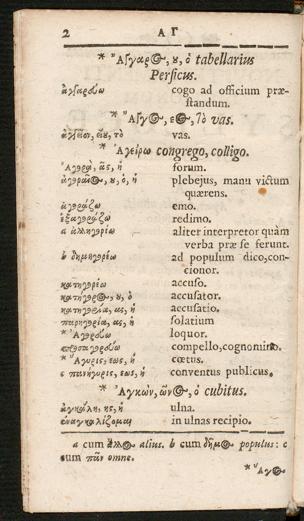 2 Α Γ
* Ἄγγαρος, ου, ὁ tabellarius
Persicus.
ἀγγαρεύω cogo ad officium præ-
standum.
* Ἄγγος, εος, τὸ vas.
ἀγγεῖον, είου, τὸ vas.
* Ἀγείρω congrego, colligo.
Ἀγορὰ, ᾶς, ἡ forum.
ἀγοραῖος, ου, ὁ, ἡ plebejus, manu victum
quærens.
ἀγοράζω emo.
ἐξαγοράζω redimo.
a ἀλληγορέω aliter interpretor quàm
verba præ se ferunt.
b δημηγορέω ad populum dico, con-
cionor.
κατηγορέω accuso.
κατήγορος, ου, ὁ accusator.
κατηγορία, ας, ἡ accusatio.
παρηγορία, ας, ἡ solatium
* Ἀγορεύω loquor.
προσαγορεύω compello, cognomino.
* Ἄγυρις, εως, ἡ cœtus.
c πανήγυρις, εως, ἡ conventus publicus.
* Ἀγκὼν, ῶνος, ὁ cubitus.
ἀγκάλη, ης, ἡ ulna.
ἐναγκαλίζομαι in ulnas recipio.
a cum ἄλλος alius. b cum δῆμος populus: c
cum πᾶν omne.
* Ἁγο